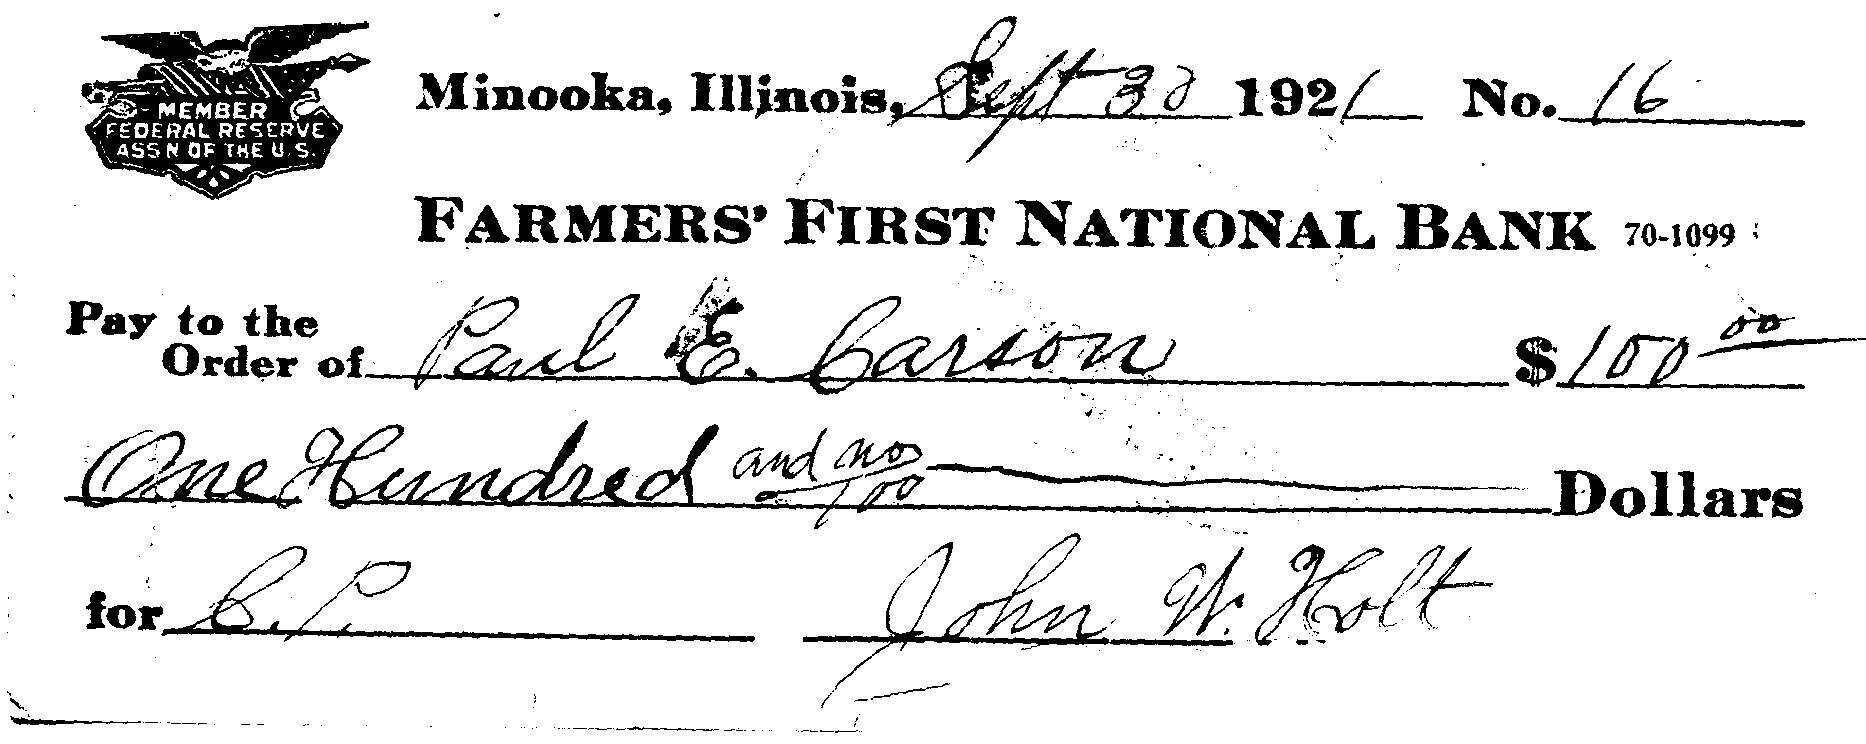 MEMBER
FEDERAL RESERVE
ASS'N OF THE U.S.
Minooka, Illinois, Sept 30 1921 No. 16
FARMERS' FIRST NATIONAL BANK 70-1099
Pay to the
Order of Paul E. Carson $100 00
One Hundred and no/100 Dollars
for C.P. John W. Holt